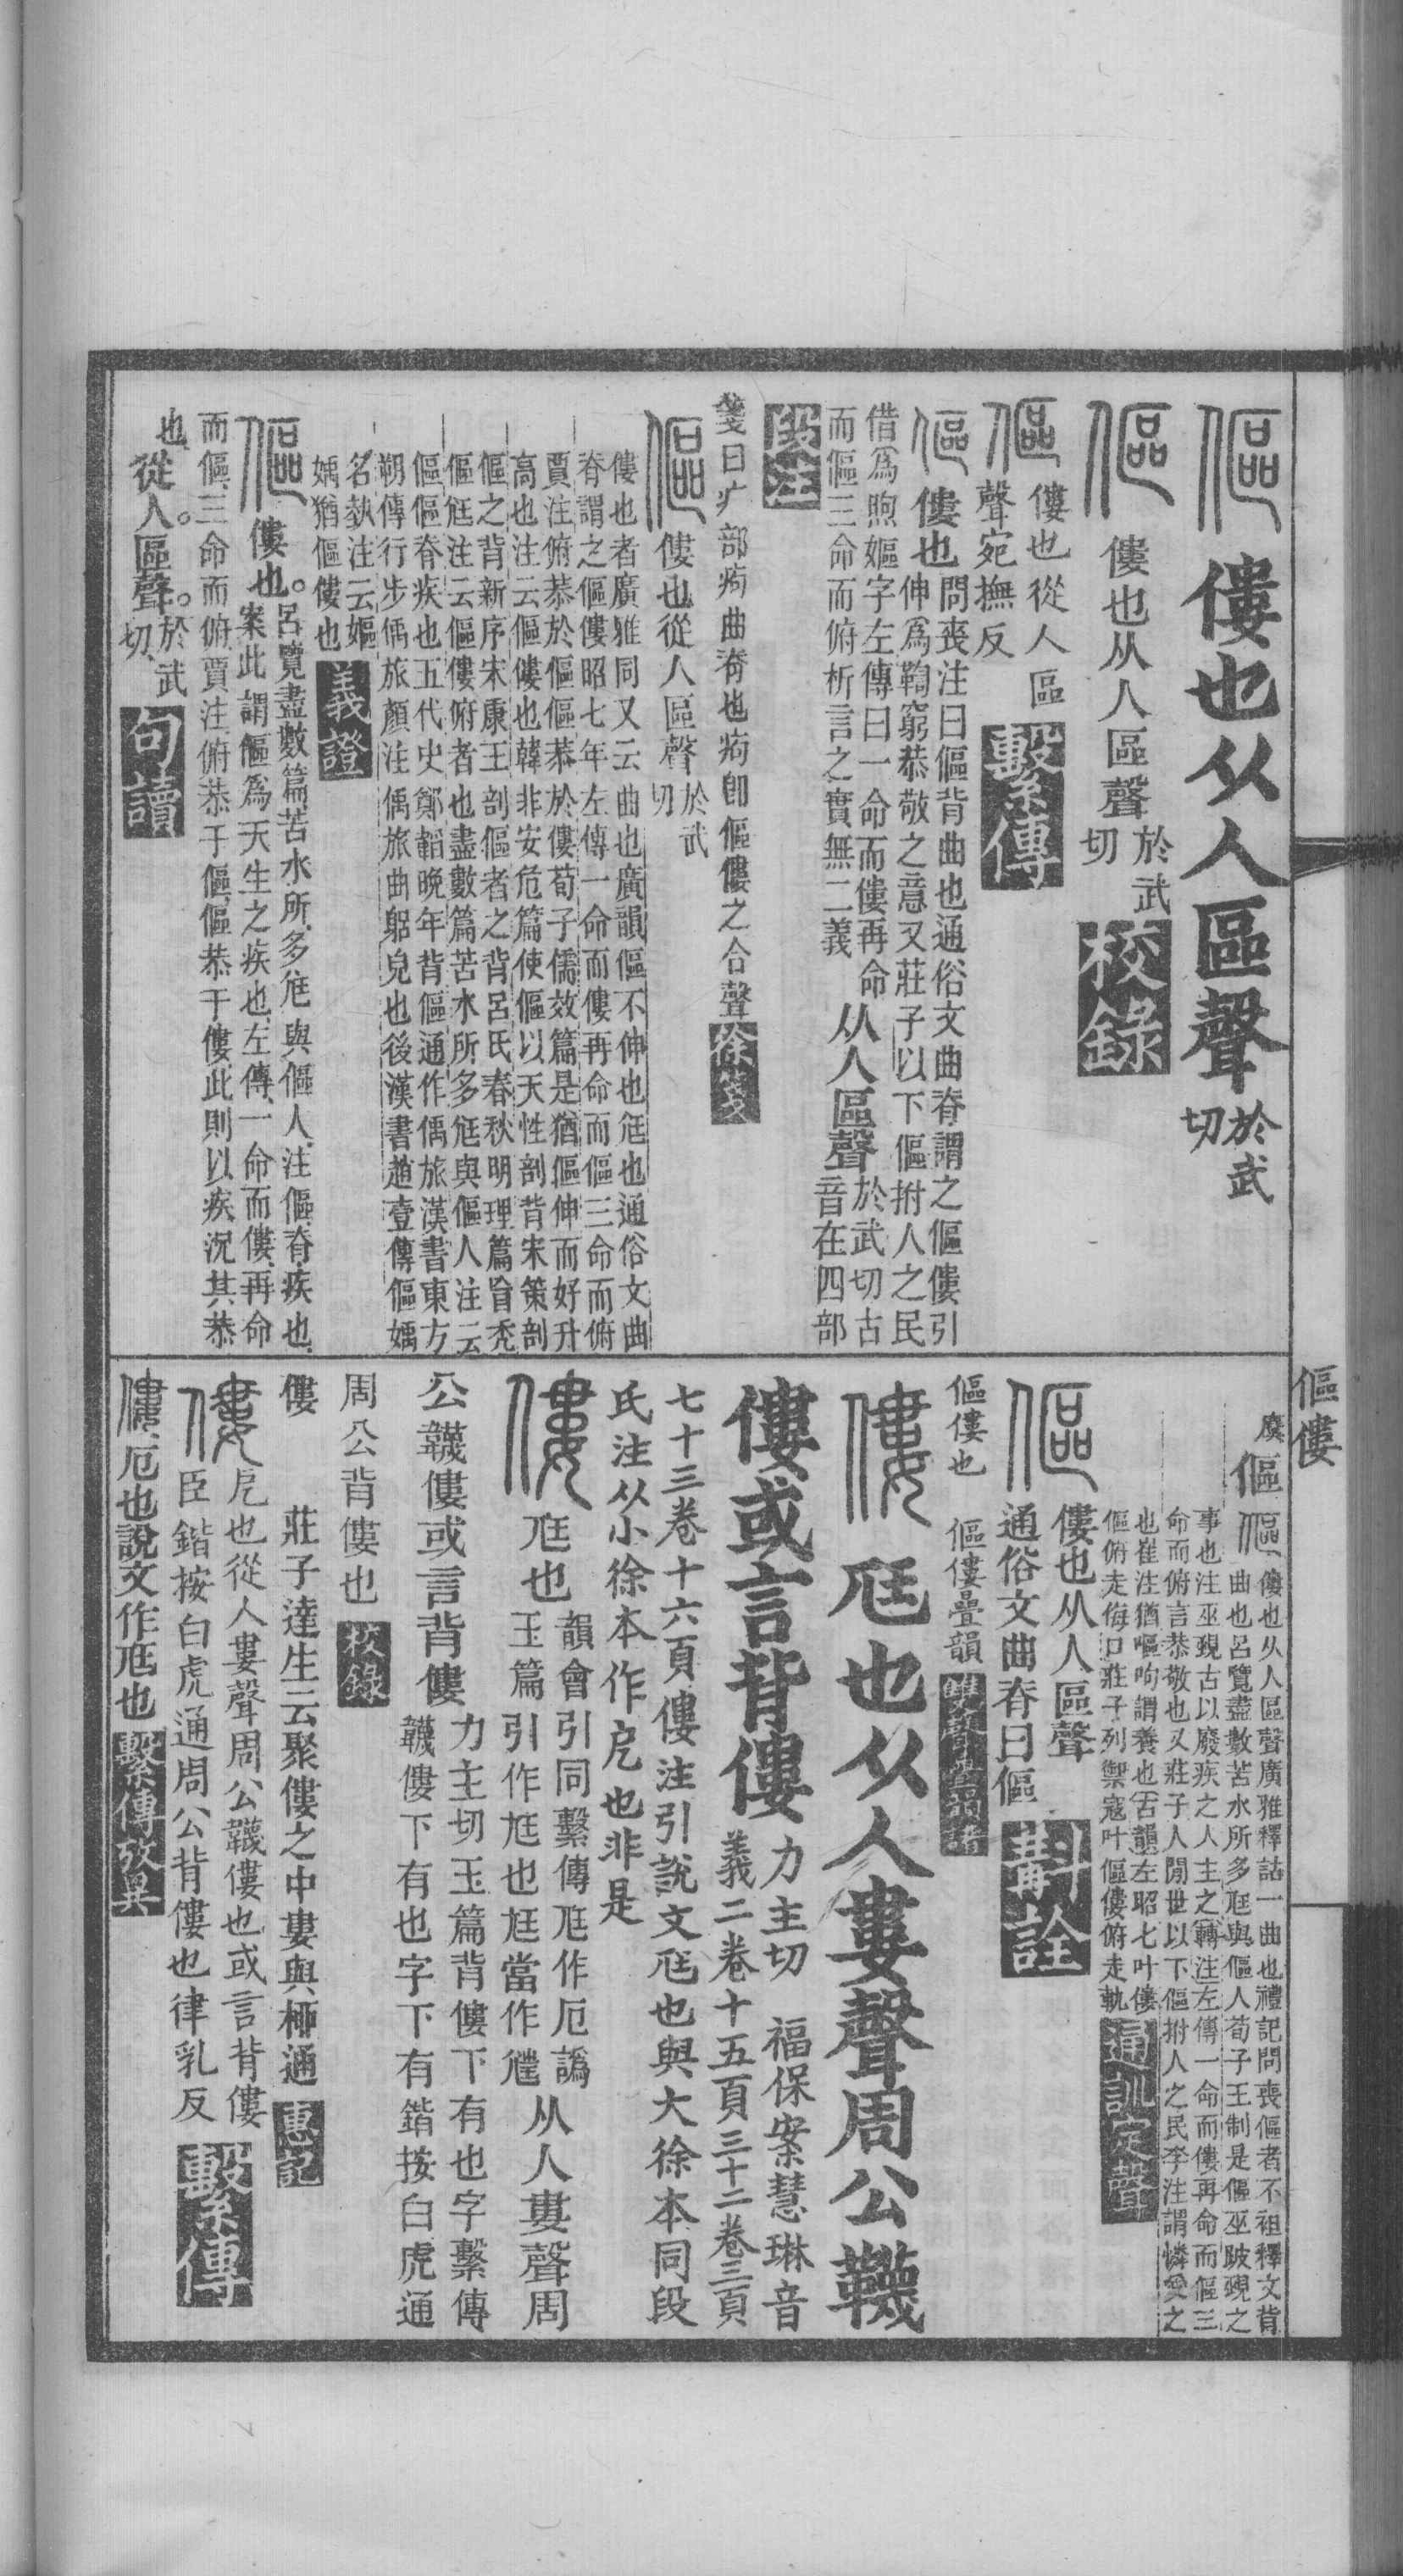 傴僂
傴 僂也从人區聲於武切
傴 僂也从人區聲於武切 校錄
傴 僂也從人區
聲宛撫反 繫傳
傴 僂也問喪注曰傴背曲也通俗文曲脊謂之傴僂引
伸爲鞠窮恭敬之意又莊子以下傴拊人之民
借爲煦嫗字左傳曰一命而僂再命
而傴三命而俯析言之實無二義 从人區聲於武切古音在四部
段注
箋曰疒部痀曲脊也痀卽傴僂之合聲 徐箋
傴 僂也從人區聲於武切
僂也者廣雅同又云曲也廣韻傴不伸也尫也通俗文曲
脊謂之傴僂昭七年左傳一命而僂再命而傴三命而俯
賈注俯恭於傴傴恭於僂荀子儒效篇是猶傴伸而好升
高也注云傴僂也韓非安危篇使傴以天性剖背宋策剖
傴之背新序宋康王剖傴者之背呂氏春秋明理篇盲禿
傴尫注云傴僂俯者也盡數篇苦水所多尫與傴人注云
傴傴脊疾也五代史鄭韜晚年背傴通作偊旅漢書東方
朔傳行步偊旅顏注偊旅曲躬皃也後漢書趙壹傳傴㛱
名埶注云嫗
㛱猶傴僂也 義證
傴 僂也。呂覽盡數篇苦水所多尫與傴人注傴脊疾也
案此謂傴爲天生之疾也左傳一命而僂再命
而傴三命而俯賈注俯恭于傴傴恭于僂此則以疾況其恭
也 從人。區聲。於武切 句讀
傴 僂也从人區聲廣雅釋詁一曲也禮記問喪傴者不袒釋文背
曲也呂覽盡數苦水所多尫與傴人荀子王制是傴巫跛覡之
事也注巫覡古以廢疾之人主之轉注左傳一命而僂再命而傴三
命而俯言恭敬也又莊子人閒世以下傴拊人之民李注謂憐愛之
也崔注猶嘔呴謂養也古韻左昭七叶僂
傴俯走侮口莊子列禦寇叶傴僂俯走軌 通訓定聲
傴 僂也从人區聲
通俗文曲脊曰傴 斠詮
傴僂也 傴僂疊韻 雙聲疊韻譜
僂 尫也从人婁聲周公韈
僂或言背僂 力主切 福保案慧琳音
義二卷十五頁三十二卷三頁
七十三卷十六頁僂注引說文尫也與大徐本同段
氏注从小徐本作𠨒也非是
僂 尫也韻會引同繫傳尫作厄譌
玉篇引作尩也尩當作𡯥 从人婁聲周
公韈僂或言背僂力主切玉篇背僂下有也字繫傳
韈僂下有也字下有鍇按白虎通
周公背僂也 校錄
僂 莊子達生云聚僂之中婁與柳通 惠記
僂 𠨒也從人婁聲周公韈僂也或言背僂
臣鍇按白虎通周公背僂也律乳反 繫傳
僂厄也說文作尫也 繫傳攷異